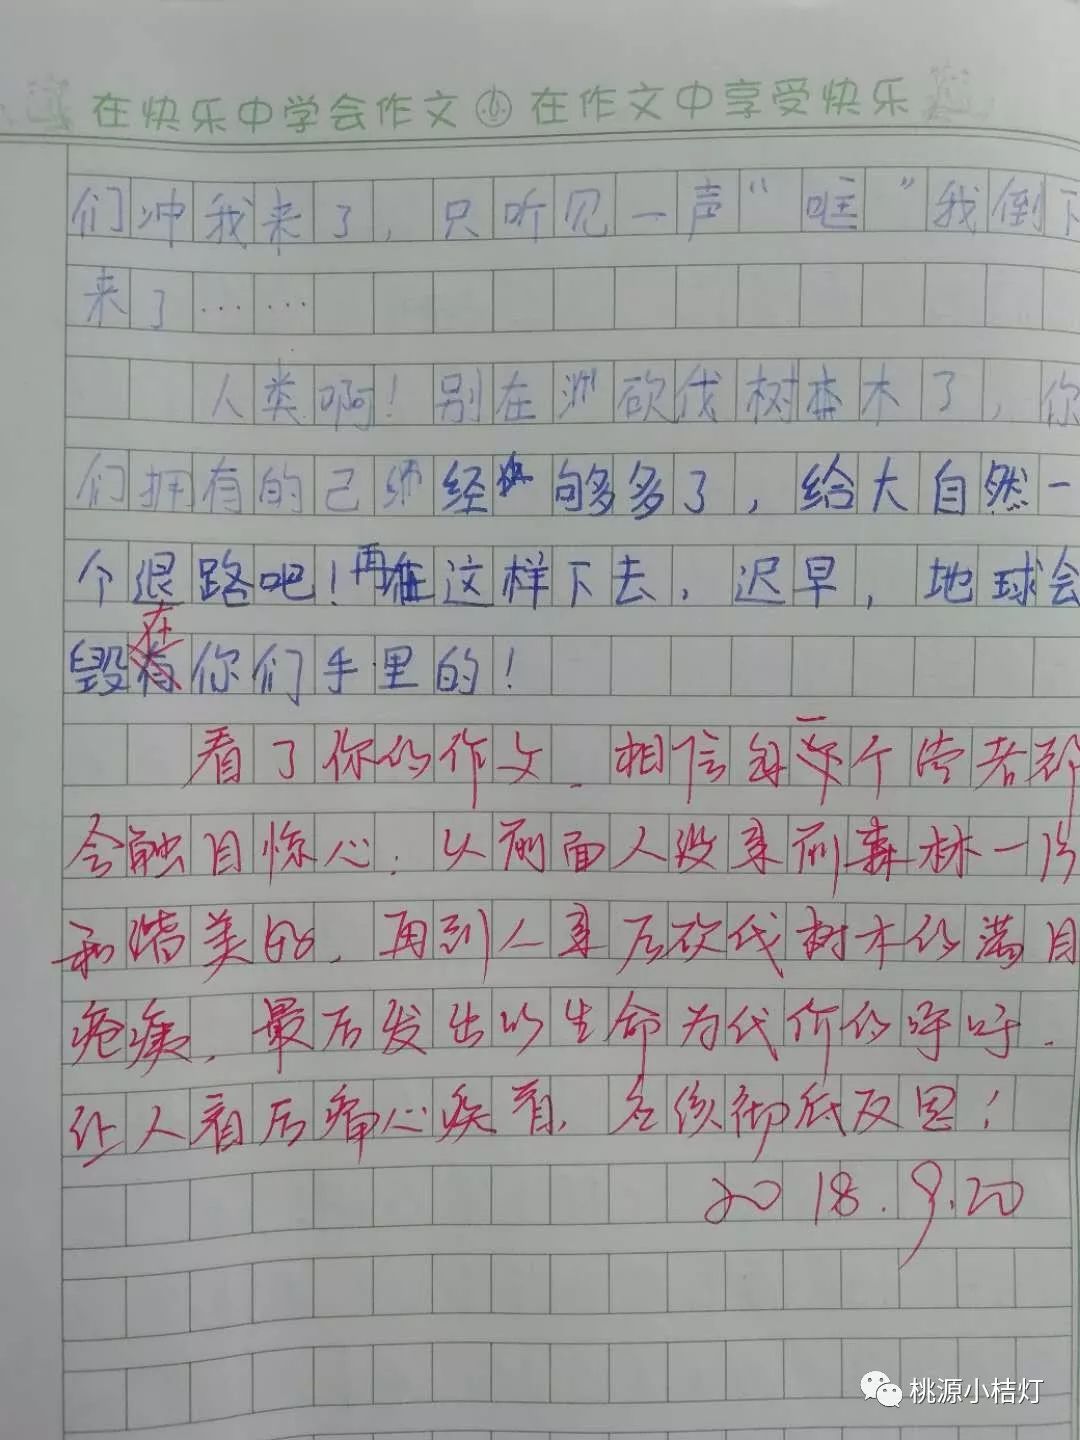 在快乐中学会作文 在作文中享受快乐
们冲我来了，只听见一声“哐”我倒下
来了……
人类啊！别在砍伐树木了，你
们拥有的已经够多了，给大自然一
个退路吧！再这样下去，迟早，地球会
毁在你们手里的！
看了你的作文，相信每一个读者都
会触目惊心．从前面人没来前森林一片
和谐美好，再到人来后砍伐树木的满目
疮痍，最后发出以生命为代价的呼吁．
让人看后痛心疾首，应该彻底反思！
2018.9.20
桃源小桔灯